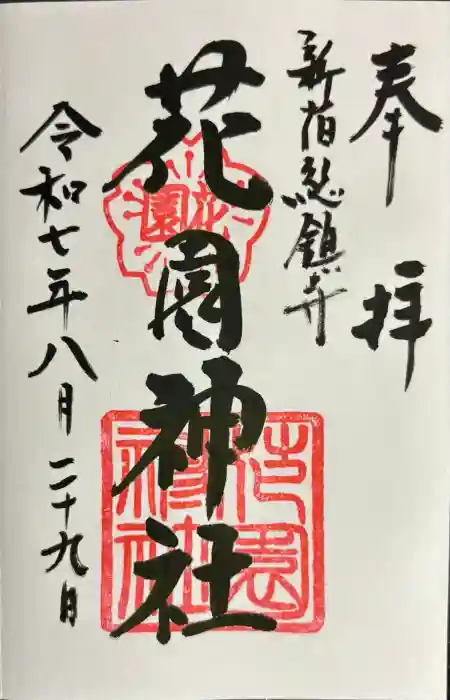 奉拝
新宿総鎮守
花園神社
令和七年八月二十九日
花園
花園神社